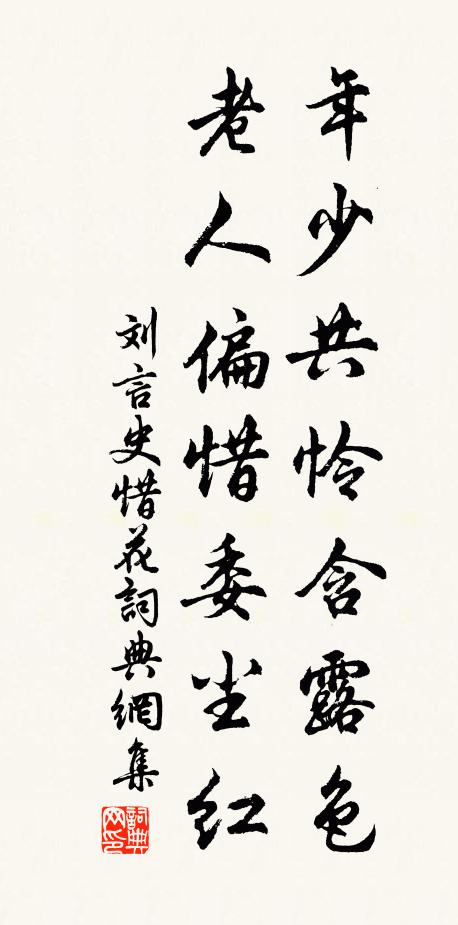 年少共怜含露色
老人偏惜委尘红
刘言史惜花詞典網集
詞典网印